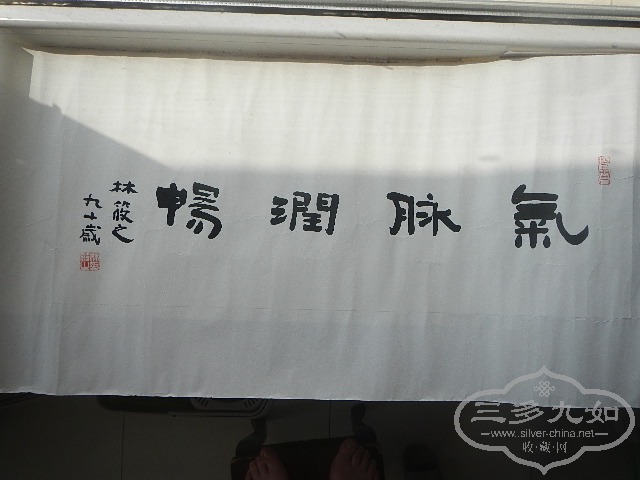 氣脉潤暢
林筱之
九十歲
三多九如
www.silver-china.net
收·藏·网